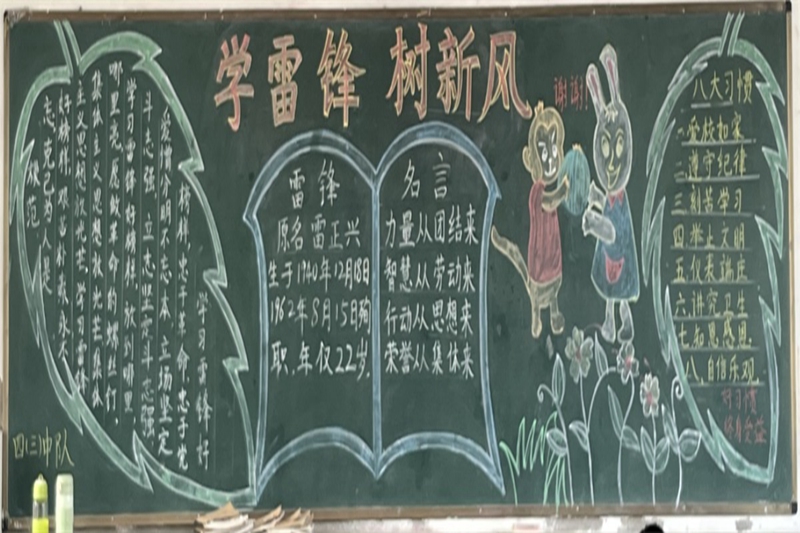 学雷锋 树新风
学习雷锋好
榜样,忠于革命忠于党
爱憎分明不忘本 立场坚定
斗志强 立志坚定斗志强
学习雷锋好榜样,放到哪里
哪里亮愿做革命的螺丝钉,
集体主义思想放光芒集体
主义思想放光芒,学习雷锋
好榜样,艰苦朴素永不
忘,克己为人是
模范
四(三)中队
雷锋
原名雷正兴
生于1940年12月18日
1962年8月15日殉
职,年仅22岁.
名言
力量从团结来
智慧从劳动来
行动从思想来
荣誉从集体来
谢谢!
八大习惯
一.爱校如家
二.遵守纪律
三.刻苦学习
四.举止文明
五.仪表端庄
六.讲究卫生
七.知恩感恩
八.自信乐观
好习惯
终身受益